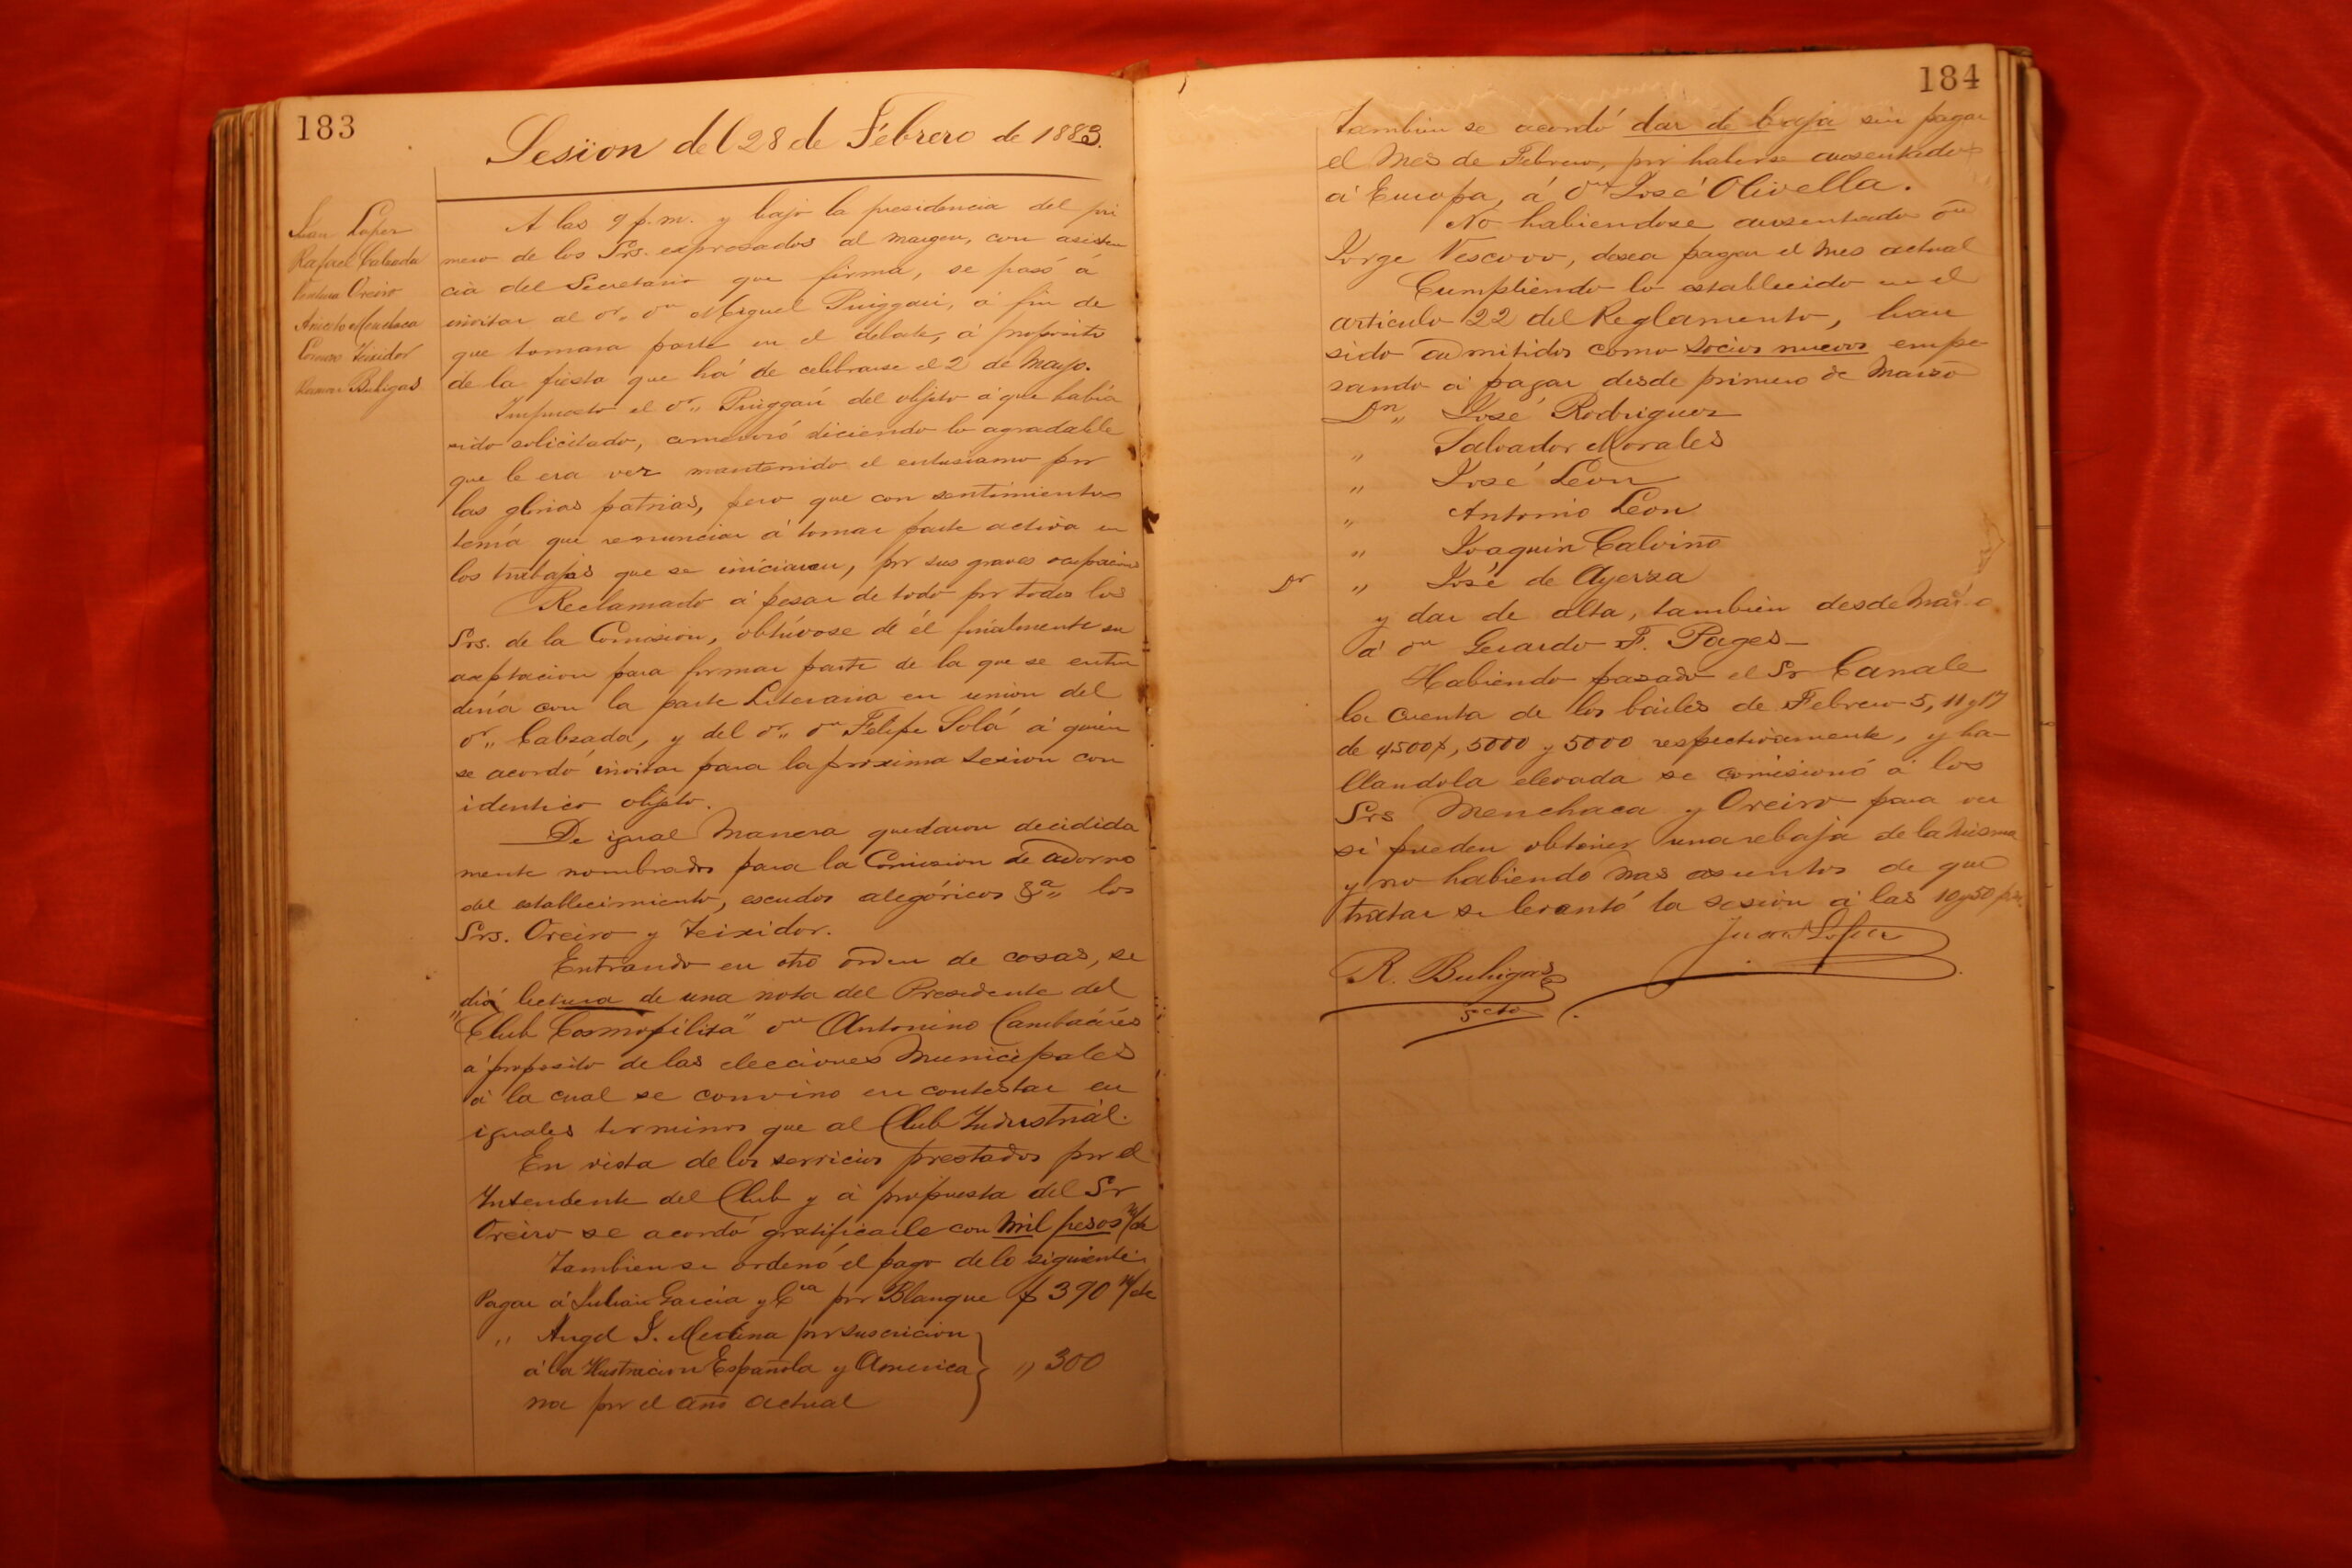 183
Sesion del 28 de Febrero de 1883.
Juan López
Rafael Calzada
Ventura Oreiro
Aniceto Menchaca
Lorenzo Teixidor
Ramon Buhigas
A las 9 p.m. y bajo la presidencia del pri
mero de los Srs. expresados al margen, con asisten
cia del Secretario que firma, se pasó á
invitar al Dr. Dn Miguel Puiggari, á fin de
que tomara parte en el debate, á proposito
de la fiesta que há de celebrarse el 2 de Mayo.
Impuesto el Dr. Puiggari del objeto á que habia
sido solicitado, comenzó diciendo lo agradable
que le era ver mantenido el entusiamo por
las glorias patrias, pero que con sentimiento
tenia que renunciar á tomar parte activa en
los trabajos que se iniciaran, por sus graves ocupaciones
Reclamado á pesar de todo por todos los
Srs. de la Comision, obtúvose de él finalmente su
aceptacion para formar parte de la que se enten
deria con la parte Literaria en union del
Dr. Calzada, y del Dr. Dn Felipe Solá á quien
se acordó invitar para la proxima sesion con
identico objeto.
De igual manera quedaron decidida
mente nombrados para la Comision de adorno
del establecimiento, escudos alegóricos &a los
Srs. Oreiro y Teixidor.
Entrando en otro orden de cosas, se
dió lectura de una nota del Presidente del
"Club Cosmopilita" Dn Antonino Cambacérés
á proposito de las elecciones Municipales
á la cual se convino en contestar en
iguales terminos que al Club Industrial.
En vista de los servicios prestados por el
Intendente del Club y á propuesta del Sr
Oreiro se acordó gratificarle con mil pesos m/c
Tambien se ordenó el pago de lo siguiente.
Pagar á Julian Garcia y Cia por Blanque $ 390 m/c
" Angel S. Medina por suscricion
á la Ilustracion Española y America " 300
na por el año actual
184
tambien se acordó dar de baja sin pagar
el Mes de Febrero, por haberse ausentado
á Europa, á Dn José Olivella.
No habiendose ausentado Dn
Jorge Vescovo, desea pagar el mes actual
Cumpliendo lo establecido en el
articulo 22 del Reglamento, han
sido admitidos como socios nuevos empe
zando á pagar desde primero de Marzo
Dn " José Rodriguez
" Salvador Morales
" José Leon
" Antonio Leon
" Joaquin Calviño
Dr " José de Ayerza
y dar de alta, tambien desde Marzo
á Dn Gerardo F. Pages
Habiendo pasado el Sr Canale
la cuenta de los bailes de Febrero 5, 11 y 17
de 4500$, 5000 y 5000 respectivamente, y ha-
llandola elevada se comisionó á los
Srs Menchaca y Oreiro para ver
si pueden obtener una rebaja de la misma
y no habiendo mas asuntos de que
tratar se levantó la sesion á las 10 y 50 p.m.
Juan López
R. Buhigas
Scto